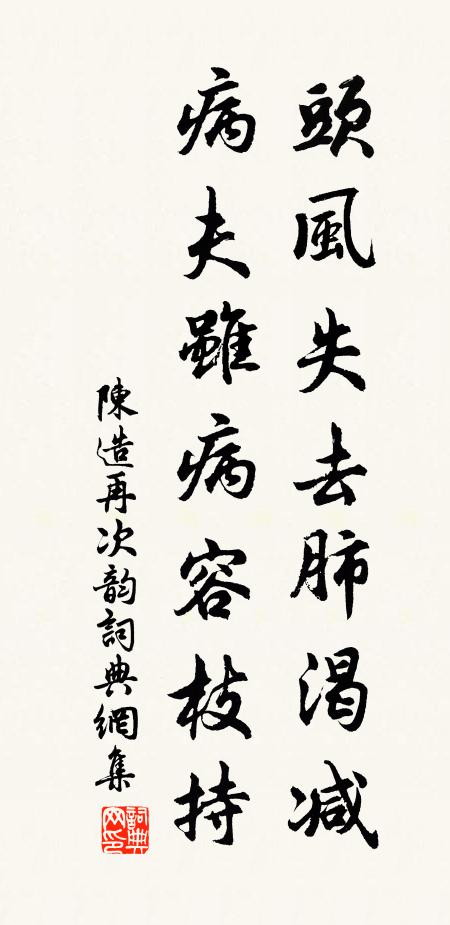 頭風失去肺渴减
病夫雖病容枝持
陳造再次韵詞典網集
詞典網印